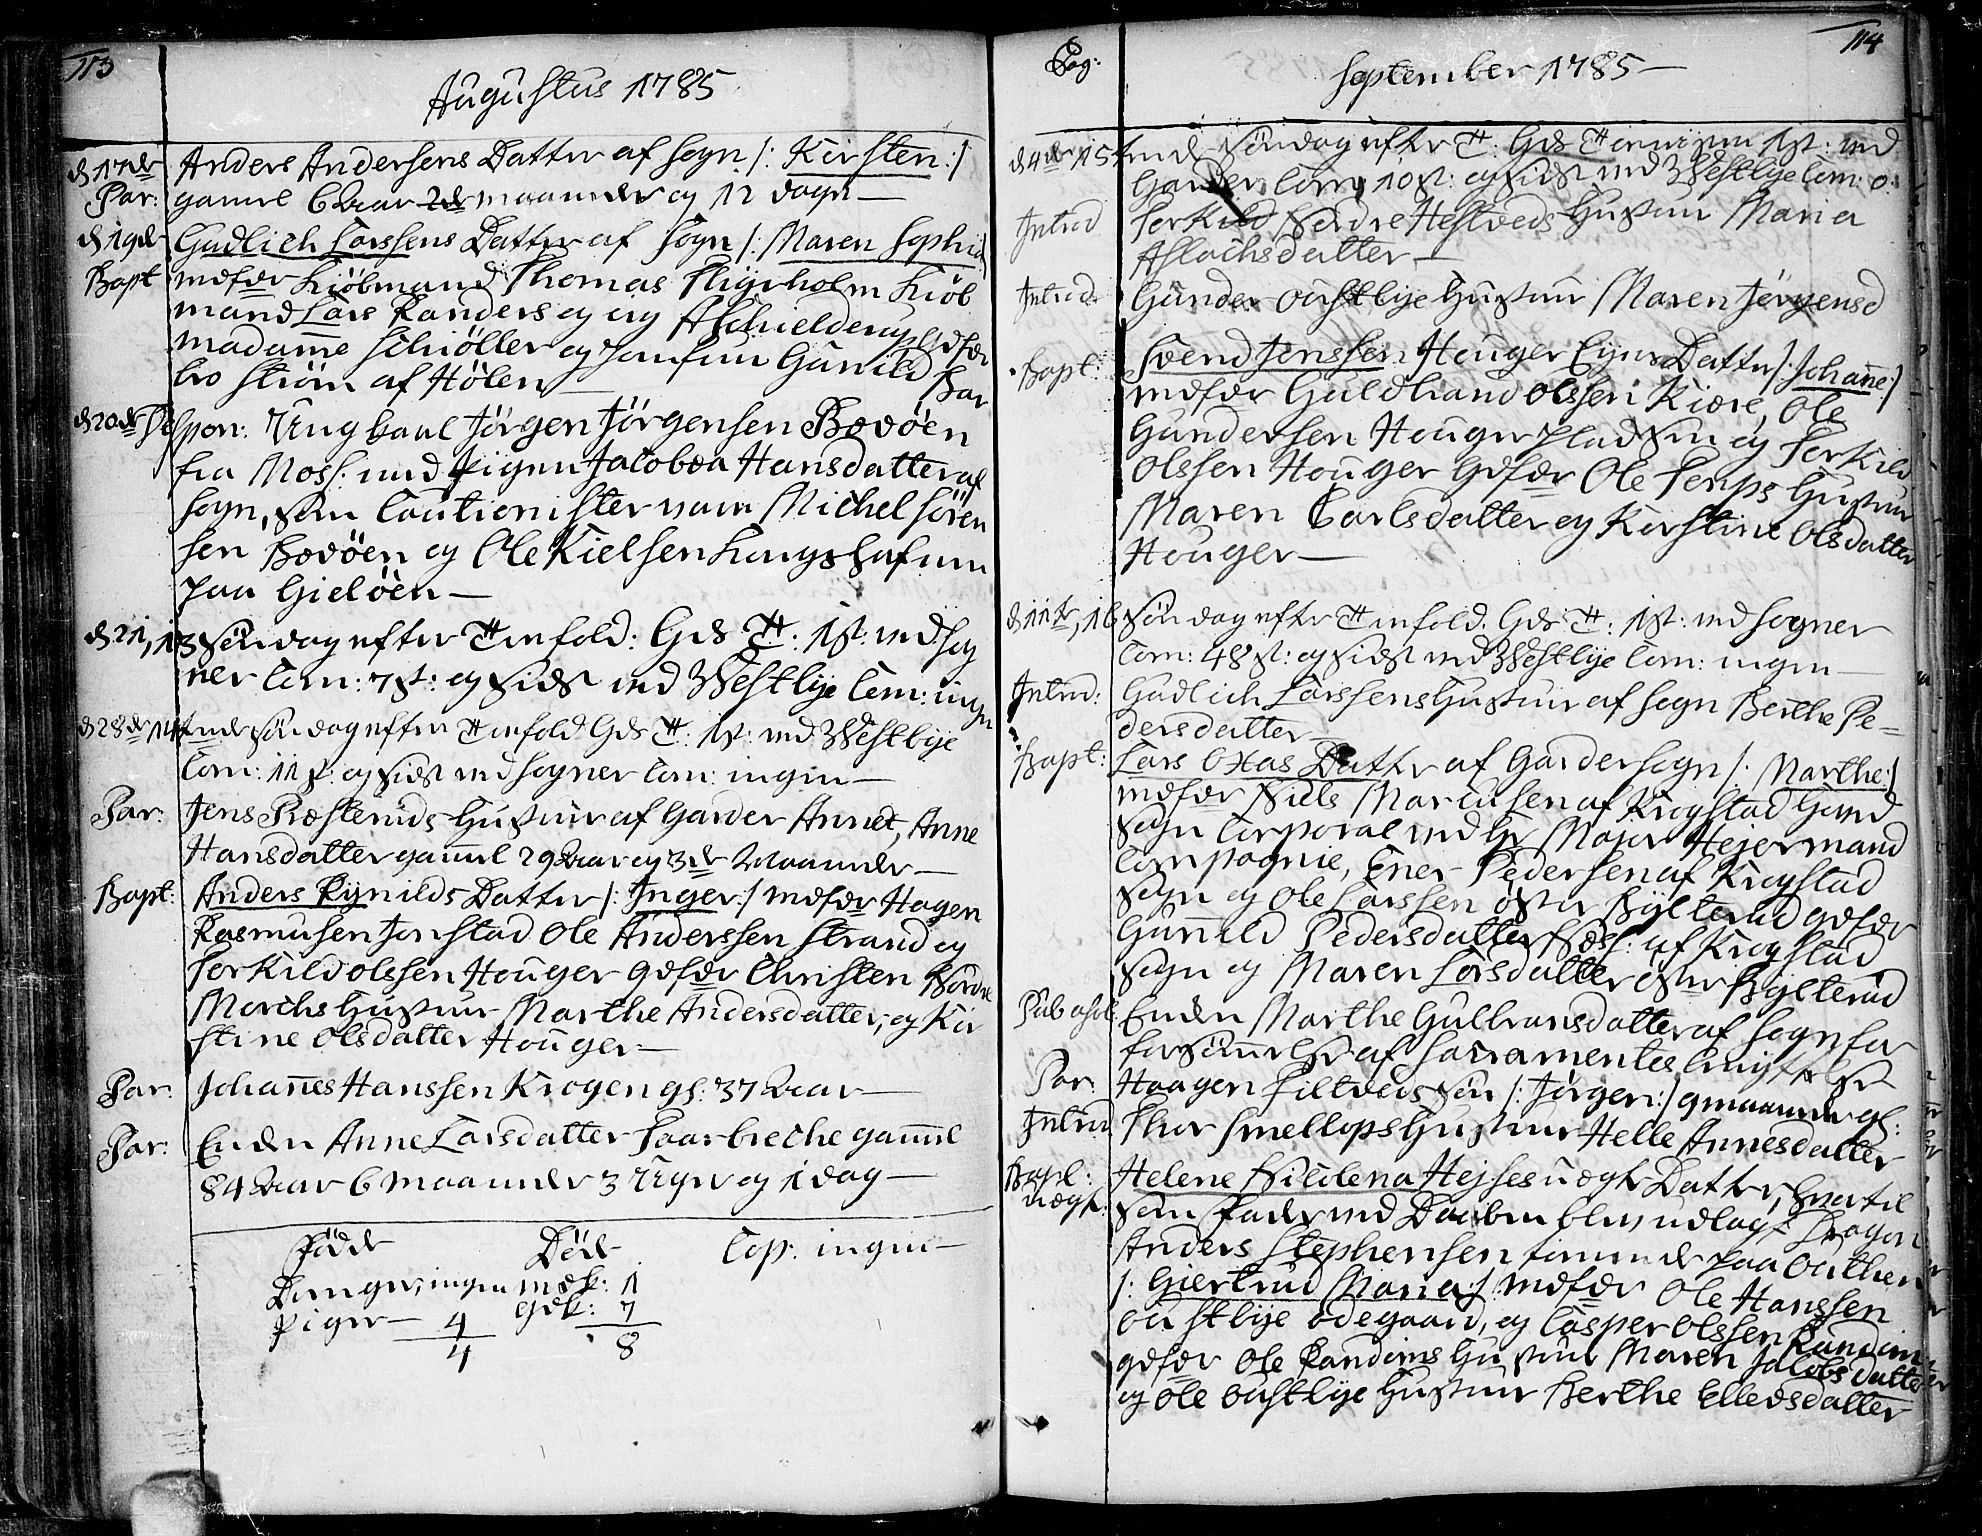 113
Augustus 1785
d 17de Anders Andersens Datter af Sogn /: Kirsten :/
Par: gamel 6 Aar 2de maaneder og 12 dage —
d 19de Gudlich Larssens Datter af Sogn /: Maren Sophia
Bapt medfær Kiöbmand Thomas Thyrholm Kiöb
mand Lars Randers og Aschielderup gvfær
madame Schiöller og Jomfrue Gunild Bar
bro Ström af Hölen —
d 20de Despon: Ungkarl Jörgen Jörgensen Bevöen
fra Moss. med Pigen Jacobea Hansdatter af
Sogn, som Cautionister vare Michel Sören
sen Bevöen og Ole Kielsen Langs Hafnen
paa Gielöen —
d 21, 13 Söndag efter Trinfold: Gds T. 1st: ved Sog
ner Com: 7 st: og sidst ved Westbye Com: ingen
d 28de 14tende Söndag efter Trinfold Gds T. 1st: ved Westbye
Com: 11 st: og sidst ved Sogner Com: ingen —
Par: Jens Præsteruds Hustrue af Garder Annex, Anne
Hansdatter gamel 29 Aar og 3de Maaneder —
Bapt: Anders Rynilds Datter /: Inger :/ medfær Hagen
Rasmusen Jonstad Ole Anderssen Strand og
Torkild Olssen Houger gvfær Christen Nordre
Morchs Hustrue Marthe Andersdatter, og Kir
stine Olsdatter Houger —
Par: Johannes Hanssen Krogen gl: 37 Aar —
Par: Enken Anne Larsdatter Saarbreche gamel
84 Aar 6 maaneder 3 Uger og 1 dag —
Födde Döde Cop: ingen —
Drenger, ingen mdk: 1
Piger — 4 qvk: 7
4 8
Pag: 114
September 1785 —
d 4de 15tende Söndag efter T. Gds T 1st: ved
Garder Com: 10 st: og sidst ved Westbye Com: 0:
Introd Torkild Nordre Hestveds Hustrue Maria
Aslachsdatter —
Introd. Gunder Oustbye Hustrue Maren Jörgensd
Bapt: Svend Jenssen Houger Eyes Datter /: Johanne :/
medfær Guldbrand Olssen Kiære, Ole
Gundersen Houger Pladsen og Torkild
Olssen Houger gvfær Ole Torps Hustrue
Maren Carlsdatter og Kirstine Olsdatter
Houger —
d 11te, 16 Söndag efter Trinfold. Gds T. 1st: ved Sogner
Com: 48 st: og sidst ved Westbye Com: ingen —
Introd: Gudlich Larssens Hustrue af Sogn Berthe Pe-
dersdatter —
Bapt: Lars Datter af Garder Sogn /: Marthe :/
medfær Niels Marcusen af Krogstad
Sogn Corporal ved Hr Major Hejermand
Compagnie, Ener Pedersen af Krogstad
Sogn og Ole Larssen Öster Bylterud gvfær
Gunild Pedersdatter af Krogstad
Sogn og Maren Larsdatter Öster Bylterud
Pub absol Enken Marthe Gulbransdatter af Sogn for
forsömmelse af Sacramentes brug
Par: Haagen Piltveds Sön /: Jörgen :/ 9 maaneder gl:
Introd Thor Smellops Hustrue Helle Annesdatter
Bapt: Helene Hejses uægte Datter, hvortil
uægt: som Fader ved Daaben blev udlagt Dragon
Anders Stephensen tienende paa Outhen
/: Giertrud Maria :/ medfær Ole Hanssen
Oustbye Ödegaard, og Casper Olssen Randem
gvfær Ole Randems Hustrue Maren Jacobsdatter
og Ole Oustbye Hustrue Berthe Ellevsdatter